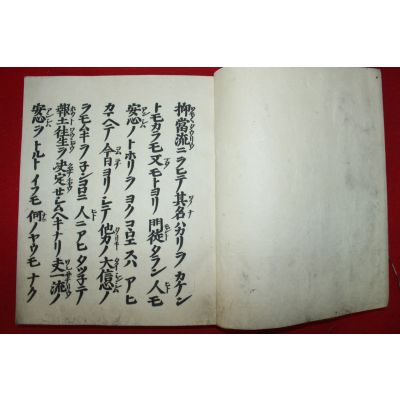 抑當流ニヲヒテ其名ハカリヲカケン
トモカラモ又モトヨリ門徒タラン人モ
安心ノトホリヲヨクコヽロエスハアヒ
カマヘテ今日ヨリシテ他力ノ大信心ノ
ヲモムキヲ子ンコロニ人ニアヒタツ子テ
報土往生ヲ決定セシムヘキナリ夫一流ノ
安心ヲトルトイフモ何ノヤウモナク